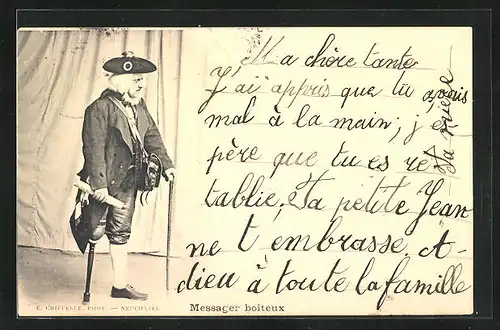 Ma chère tante
J'ai appris que tu avais
mal à la main; j'es
père que tu es ré
tablie. Ta petite Jean
ne t embrasse. A-
dieu à toute la famille
Ta nièce
E. CHIFFELLE, PHOT. — NEUCHATEL
Messager boiteux